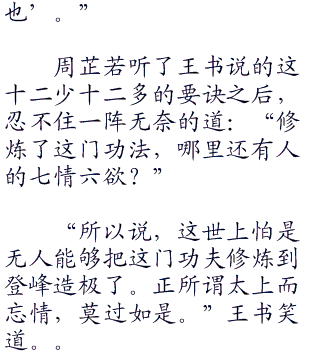 也’。”
周芷若听了王书说的这
十二少十二多的要诀之后，
忍不住一阵无奈的道：“修
炼了这门功法，哪里还有人
的七情六欲？”
“所以说，这世上怕是
无人能够把这门功夫修炼到
登峰造极了。正所谓太上而
忘情，莫过如是。”王书笑
道。。